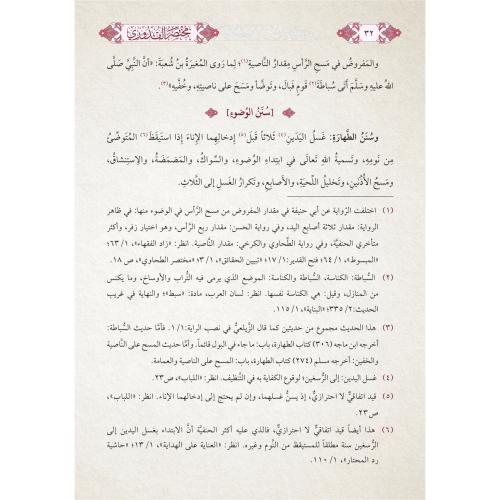 ٣٢
مختصر القدوري
والمَفروضُ في مَسحِ الرَّأسِ مِقدارُ النَّاصيةِ(١)؛ لِما رَوى المُغيرَةُ بنُ شُعبَةَ: «أنَّ النَّبِيَّ صَلَّى
اللهُ عليهِ وسَلَّمَ أتَى سُباطَةَ(٢) قَومٍ فَبالَ، وتَوضَّأَ ومَسَحَ على ناصيتِهِ، وخُفَّيهِ»(٣).
[سُنَنُ الوُضوءِ]
وسُنَنُ الطَّهارَةِ: غَسلُ اليَدَينِ(٤) ثَلاثًا قَبلَ(٥) إدخالِهِما الإناءَ إذا استَيقَظَ(٦) المُتَوضِّئُ
مِن نَومِهِ، وتَسميةُ اللهِ تَعالَى في ابتِداءِ الوُضوءِ، والسِّواكُ، والمَضمَضَةُ، والاِستِنشاقُ،
ومَسحُ الأُذُنَينِ، وتَخليلُ اللِّحيَةِ، والأصابِعِ، وتَكرارُ الغَسلِ إلى الثَّلاثِ.
(١) اختلفت الرّواية عن أبي حنيفة في مقدار المفروض من مسح الرَّأس في الوضوء منها: في ظاهر
الرواية: مقدار ثلاثة أصابع اليد، وفي رواية الحسن: مقدار ربع الرَّأس، وهو اختيار زفر، وأكثر
متأخري الحنفيَّة، وفي رواية الطَّحاوي والكرخي: مقدار النَّاصية. انظر: «زاد الفقهاء»، ١/ ٦٣؛
«المبسوط»، ١/ ٦٤؛ فتح القدير: ١/ ١٧؛ «تبيين الحقائق»، ١/ ٣؛ «مختصر الطحاوي»، ص ١٨.
(٢) السُّباطة: الكناسة، السُّباطة والكناسة: الموضع الذي يرمى فيه التُّراب والأوساخ، وما يكنس
من المنازل، وقيل: هي الكناسة نفسها. انظر: لسان العرب، مادة: «سبط»؛ والنهاية في غريب
الحديث: ٢/ ٣٣٥؛ «البناية»، ١/ ١١٥.
(٣) هذا الحديث مجموع من حديثين كما قال الزَّيلعيُّ في نصب الراية: ١/ ١. فأمَّا حديث السُّباطة:
أخرجه ابن ماجه (٣٠٦) كتاب الطهارة، باب: ما جاء في البول قائماً. وأمَّا حديث المسح على النَّاصية
والخفين: أخرجه مسلم (٢٧٤) كتاب الطهارة، باب: المسح على الناصية والعمامة.
(٤) غسل اليدين: إلى الرُّسغين؛ لوقوع الكفاية به في التَّنظيف. انظر: «اللباب»، ص٢٣.
(٥) قيد اتفاقيٌّ لا احترازيٌّ، إذ يسنُّ غسلهما، وإن لم يحتج إلى إدخالهما الإناء. انظر: «اللباب»،
ص٢٣.
(٦) هذا أيضاً قيد اتفاقيٌّ لا احترازيٌّ، فالذي عليه أكثر الحنفيَّة أنَّ الابتداء بغسل اليدين إلى
الرُّسغين سنة مطلقاً للمستيقظ من النَّوم وغيره. انظر: «العناية على الهداية»، ١/ ١٣؛ «حاشية
رد المحتار»، ١/ ١١٠.